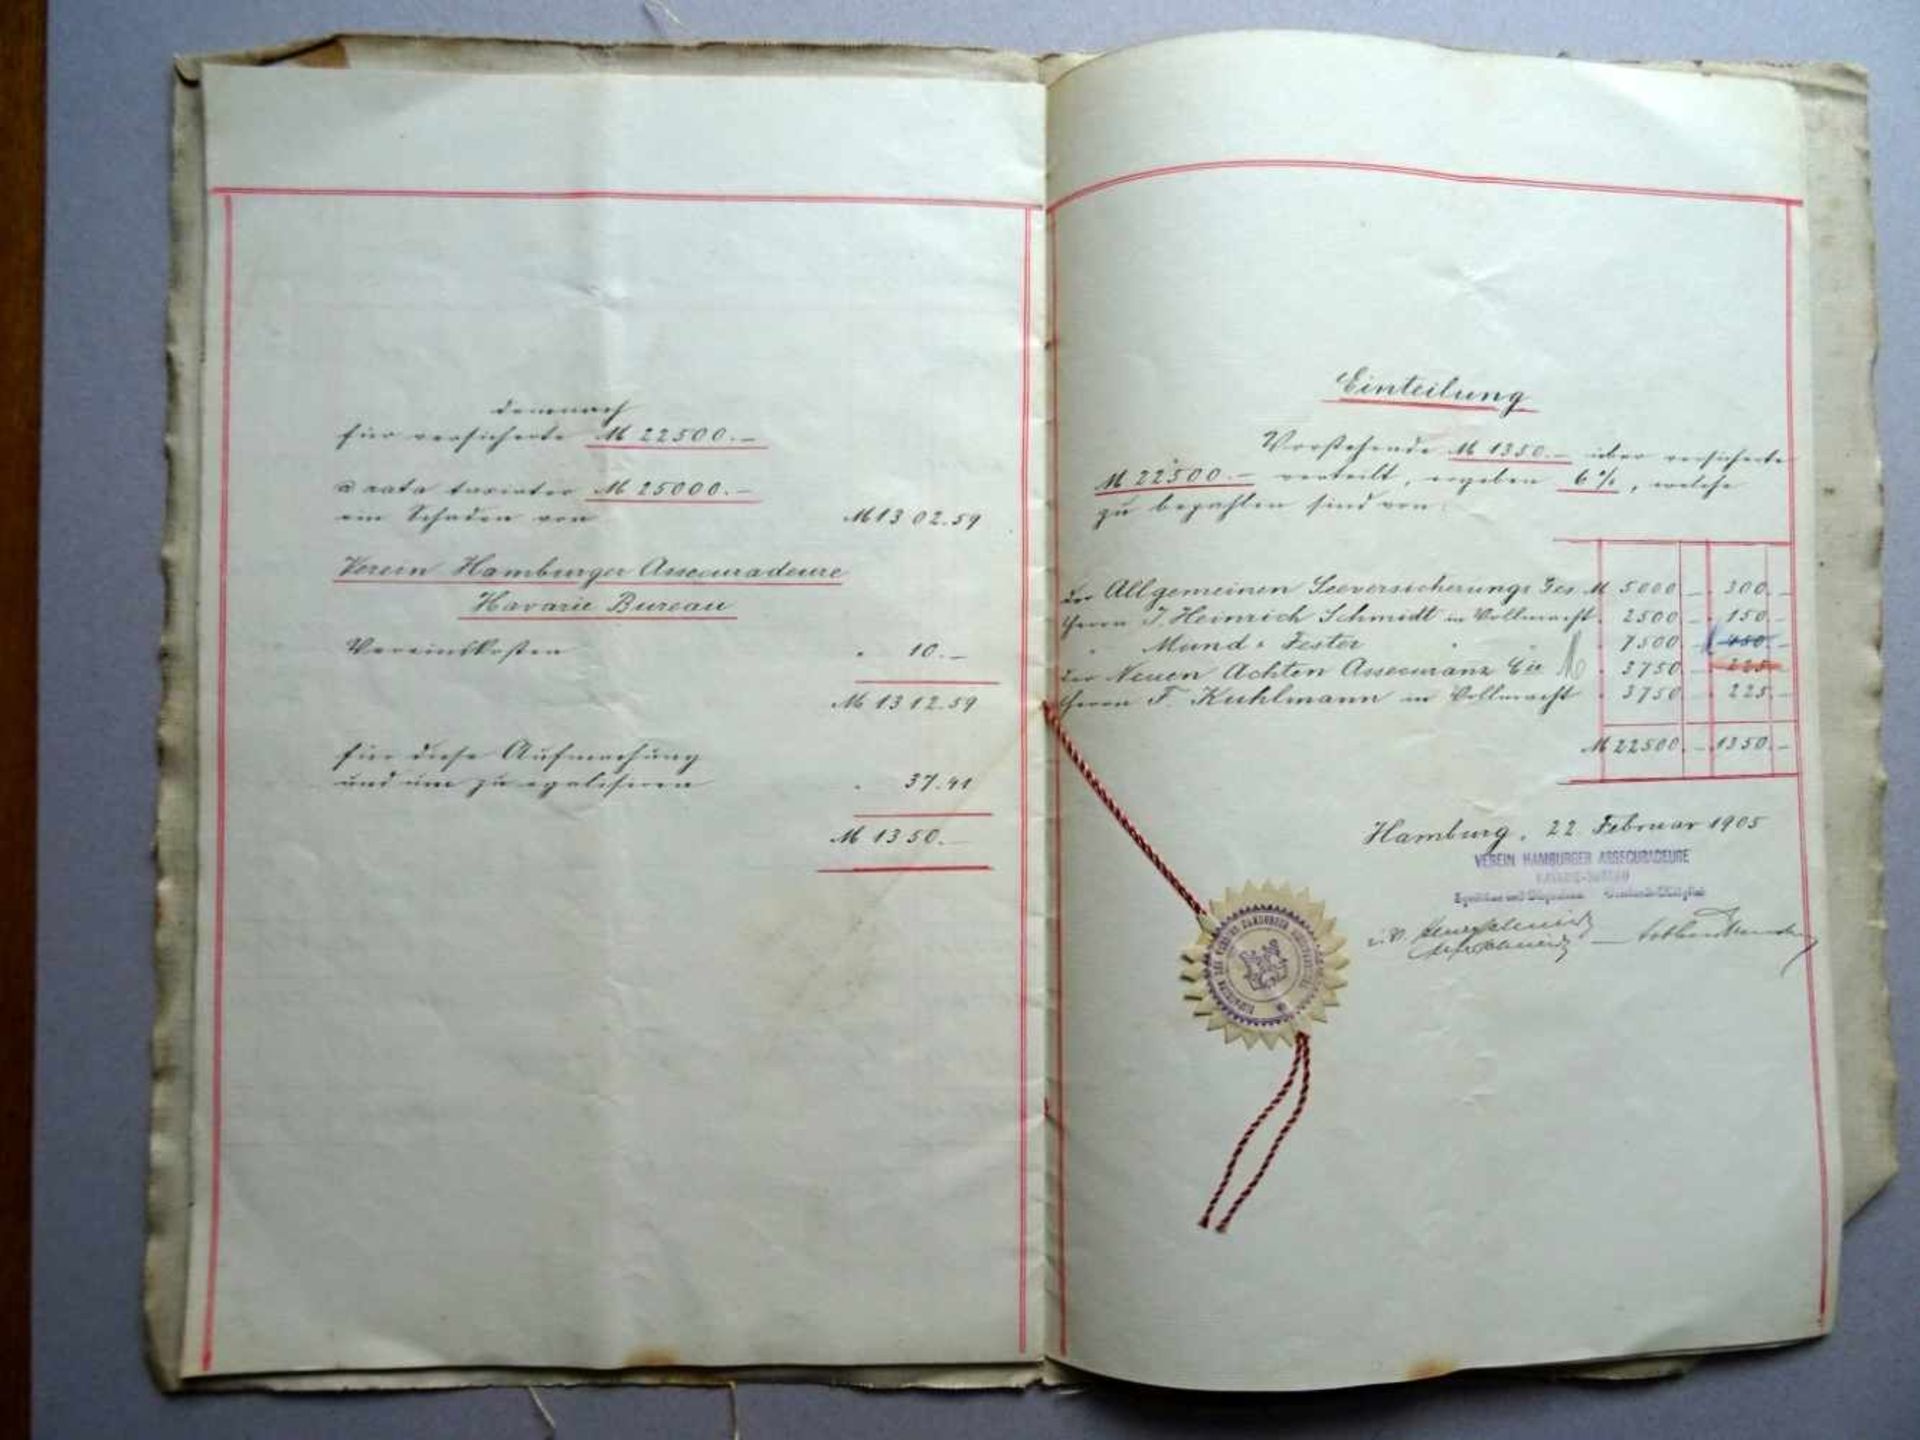 demnach
für versicherte M 22500.–
a rata taxirter M 25000.–
ein Schaden von M 1302.59
Verein Hamburger Assecuradeure
Havarie Bureau
Vereinskosten " 10.–
M 1312.59
für diese Aufmachung
und um zu egalisiren " 37.41
M 1350.–
Einteilung
Vorstehende M 1350.– über versicherte
M 22500.– verteilt, ergeben 6%, welche
zu bezahlen sind von:
der Allgemeinen Seeversicherungs Ges M 5000 – 300.–
Herrn J. Heinrich Schmidt in Vollmacht " 2500 – 150.–
" Mund & Fester " " 7500 – 450.–
der Neuen Achten Assecuranz Cie " 3750 – 225.–
Herrn F. Kuhlmann in Vollmacht " 3750 – 225.–
M 22500 – 1350.–
Hamburg, 22 Februar 1905
VEREIN HAMBURGER ASSECURADEURE
HAVARIE-BUREAU